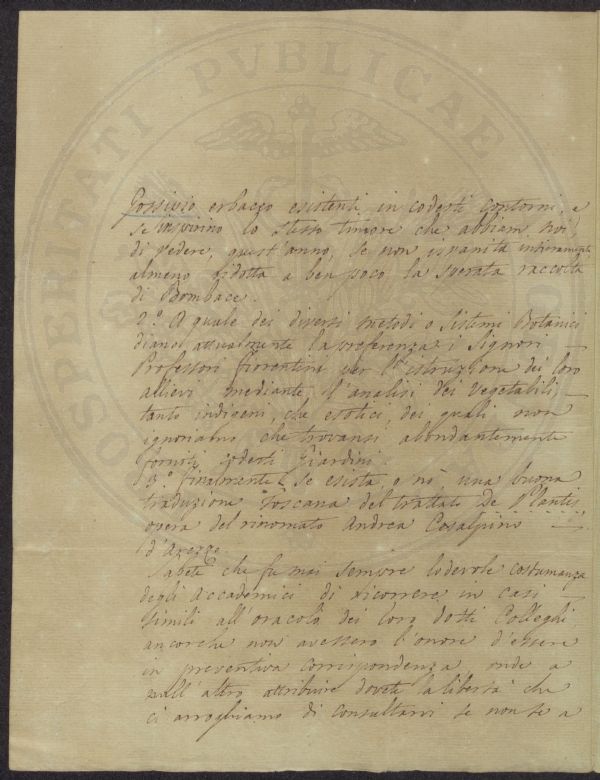 PROSPERITATI PVBLICAE
Gossipio erbaceo esistenti in codesti contorni, e
se inspirino lo stesso timore che abbiam noi
di vedere, quest'anno, se non isvanita intieramente
almeno ridotta a ben poco la sperata raccolta
di Bombace.
2.° A quale dei diversi metodi o sistemi Botanici
diano attualmente la preferenza i Signori
Professori fiorentini per l'istruzione dei loro
allievi mediante l'analisi dei vegetabili,
tanto indigeni, che esotici, dei quali non
ignoriamo che trovansi abondantemente
forniti codesti Giardini.
3.° finalmente se esista, o nò, una buona
traduzione Toscana del trattato De Plantis
opera del rinomato Andrea Cesalpino
d'Arezzo.
Sapete che fu mai sempre lodevole costumanza
degli Accademici di ricorrere in casi
simili all'oracolo dei loro dotti Colleghi
ancorche non avessero l'onore d'essere
in preventiva corrispondenza, onde a
null'altro attribuire dovete la libertà che
ci arroghiamo di consultarvi se non se a